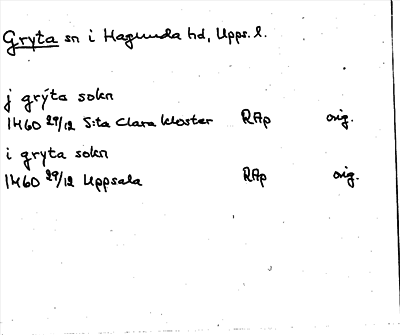 Gryta sn i Hagunda hd, Upps. l.
j grýta sokn
1460 29/12 S:ta Clara kloster RAp orig.
i gryta sokn
1460 29/12 Uppsala RAp orig.